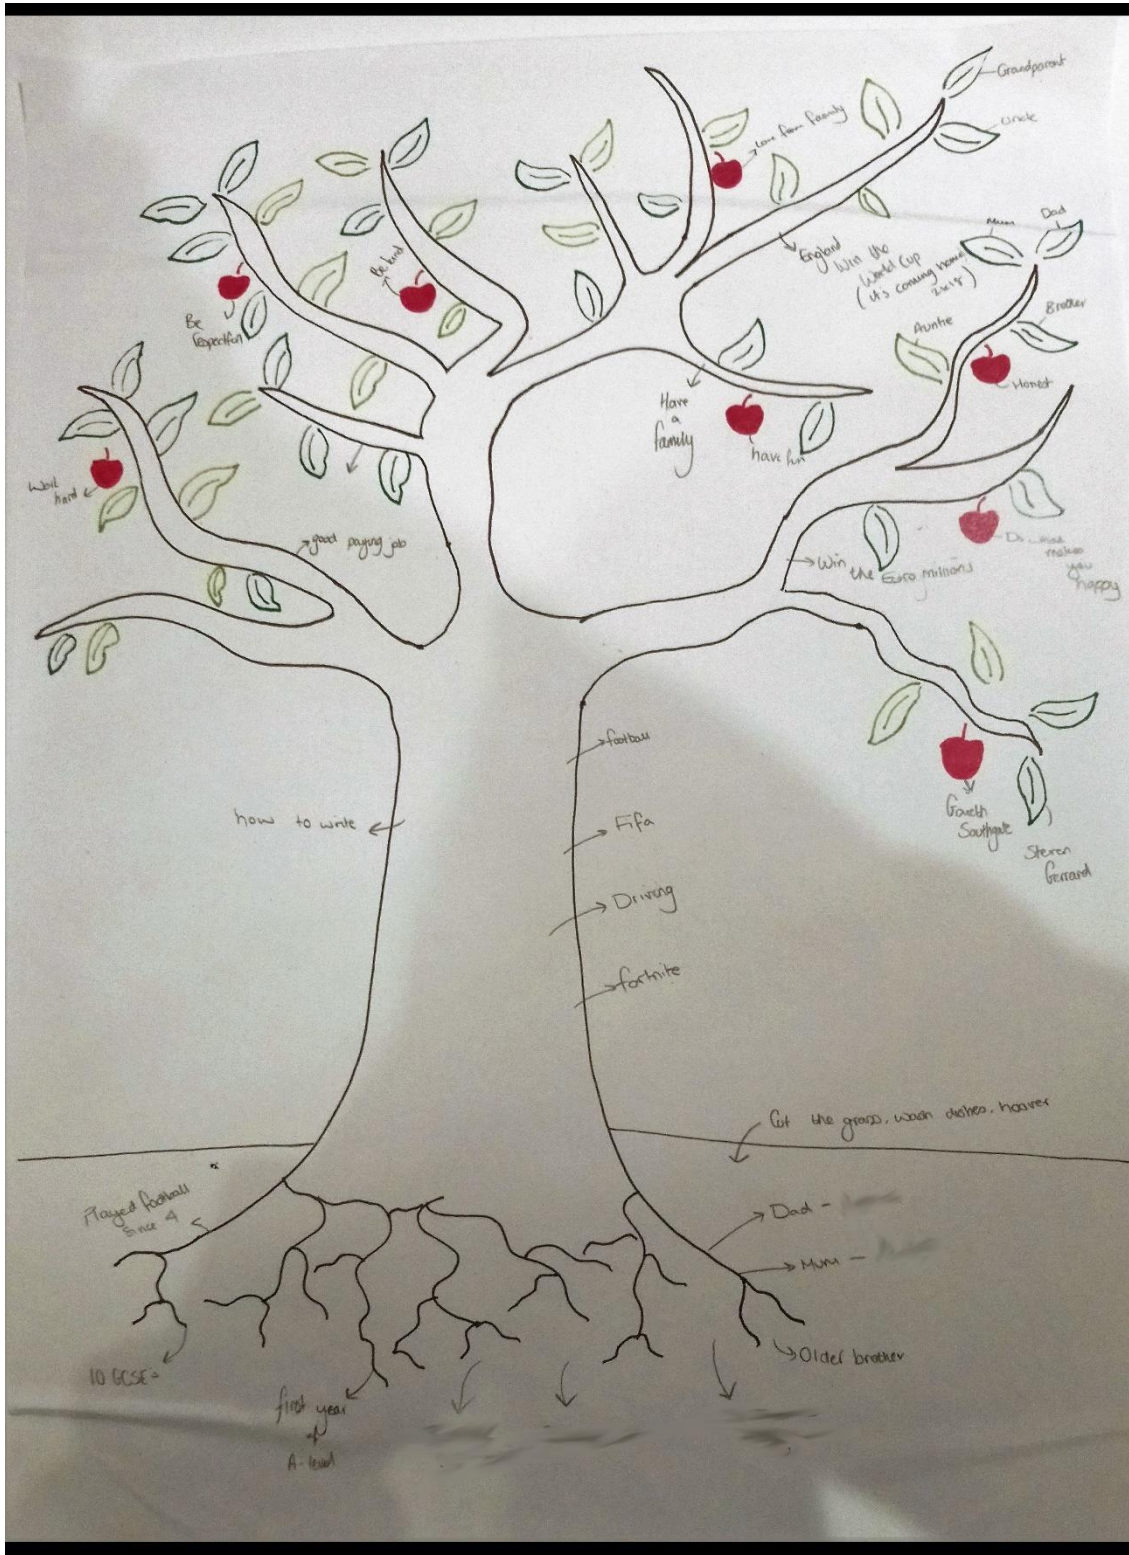 Grandparent
Uncle
Love from family
Mum
Dad
England Win the
World Cup
(it's coming home
2k18)
Be kind
Be
respectful
Auntie
Brother
Honest
Have
a
family
have fun
Work
hard
good paying job
Win
the Euro millions
Do what
makes
you
happy
Gareth
Southgate
Steven
Gerrard
football
how to write
Fifa
Driving
fortnite
Cut the grass, wash dishes, hoover
Played football
since 4
Dad -
Mum -
Older brother
10 GCSE's
first year
of
A-level